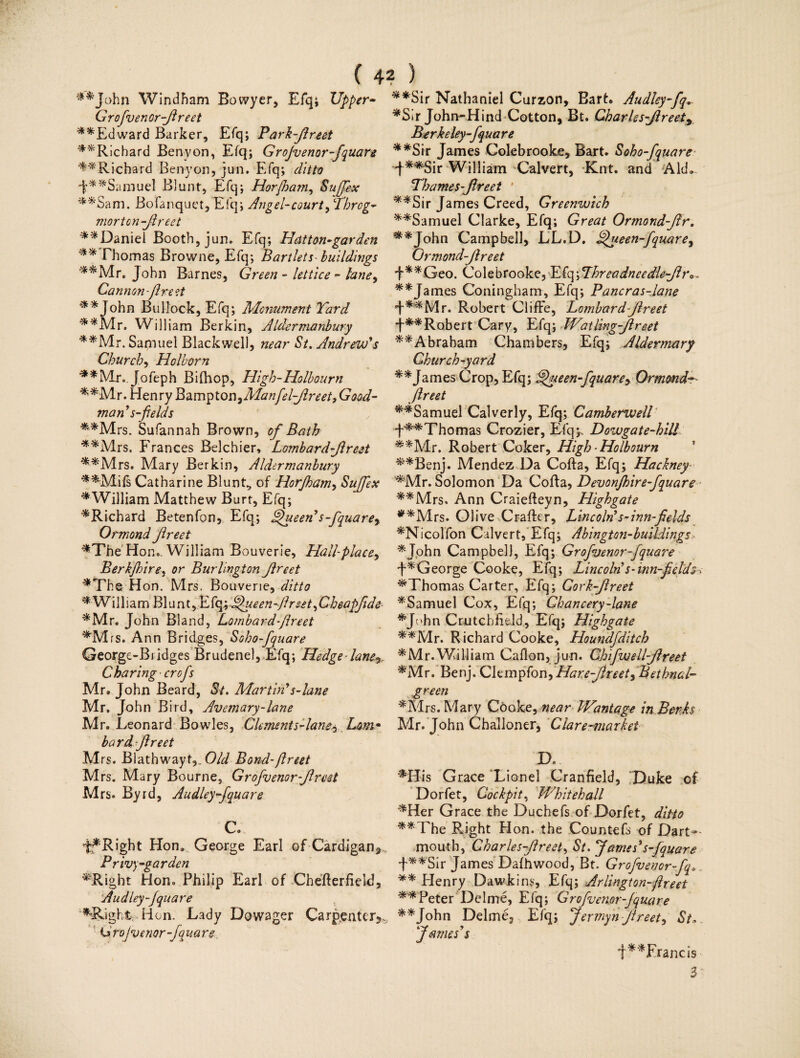 ( 42 )
**John Windham Bowyer, Esq; Upper-
Grosvenor-street
**Edward Barker, Esq; Park-street
**Richard Benyon, Esq; Grosvenor-square
**Richard Benyon, jun. Esq; ditto
†**Samuel Blunt, Esq; Horsham, Sussex
**Sam. Bosanquet, Esq; Angel-court, Throg-
morton-street
**Daniel Booth, jun. Esq; Hatton-garden
**Thomas Browne, Esq; Bartlets-buildings
**Mr. John Barnes, Green-lettice-lane,
Cannon-street
**John Bullock, Esq; Monument Yard
**Mr. William Berkin, Aldermanbury
**Mr. Samuel Blackwell, near St. Andrew's
Church, Holborn
**Mr. Joseph Bishop, High-Holbourn
**Mr. Henry Bampton, Mansel-street, Good-
man's-fields
**Mrs. Susannah Brown, of Bath
**Mrs. Frances Belchier, Lombard-street
**Mrs. Mary Berkin, Aldermanbury
**Miss Catharine Blunt, of Horsham, Sussex
*William Matthew Burt, Esq;
*Richard Betenson, Esq; Queen's-square,
Ormond street
*The Hon. William Bouverie, Hall-place,
Berkshire, or Burlington street
*The Hon. Mrs. Bouverie, ditto
*William Blunt, Esq; Queen-street, Cheapside
*Mr. John Bland, Lombard-street
*Mrs. Ann Bridges, Soho-square
George-Bridges Brudenel, Esq; Hedge-lane,
Charing-cross
Mr. John Beard, St. Martin's-lane
Mr. John Bird, Avemary-lane
Mr. Leonard Bowles, Clements-lane, Lom-
bard-street
Mrs. Blathwayt, Old Bond-street
Mrs. Mary Bourne, Grosvenor-street
Mrs. Byrd, Audley-square
C.
†*Right Hon. George Earl of Cardigan,
Privy-garden
*Right Hon. Philip Earl of Chesterfield,
Audley-square
*Right Hon. Lady Dowager Carpenter,
Grosvenor-square
**Sir Nathaniel Curzon, Bart. Audley-sq.
*Sir John-Hind Cotton, Bt. Charles-street,
Berkeley-square
**Sir James Colebrooke, Bart. Soho-square
†**Sir William Calvert, Knt. and Ald.
Thames-street
**Sir James Creed, Greenwich
**Samuel Clarke, Esq; Great Ormond-str.
**John Campbell, LL.D. Queen-square,
Ormond-street
†**Geo. Colebrooke, Esq; Threadneedle-str.
**James Coningham, Esq; Pancras-lane
†**Mr. Robert Cliffe, Lombard-street
†**Robert Cary, Esq; Watling-street
**Abraham Chambers, Esq; Aldermary
Church-yard
**James Crop, Esq; Queen-square, Ormond-
street
**Samuel Calverly, Esq; Camberwell
†**Thomas Crozier, Esq; Dowgate-hill
**Mr. Robert Coker, High-Holbourn
**Benj. Mendez Da Costa, Esq; Hackney
*Mr. Solomon Da Costa, Devonshire-square
**Mrs. Ann Craiesteyn, Highgate
**Mrs. Olive Crafter, Lincoln's-inn-fields
*Nicolson Calvert, Esq; Abington-buildings
*John Campbell, Esq; Grosvenor-square
†*George Cooke, Esq; Lincoln's-inn-fields
*Thomas Carter, Esq; Cork-street
*Samuel Cox, Esq; Chancery-lane
*John Crutchfield, Esq; Highgate
**Mr. Richard Cooke, Houndsditch
*Mr. William Caslon, jun. Chiswell-street
*Mr. Benj. Clempson, Hare-street, Bethnal-
green
*Mrs. Mary Cooke, near Wantage in Berks
Mr. John Challoner, Clare-market
D.
*His Grace Lionel Cranfield, Duke of
Dorset, Cockpit, Whitehall
*Her Grace the Duchess of Dorset, ditto
**The Right Hon. the Countess of Dart-
mouth, Charles-street, St. James's-square
†**Sir James Dashwood, Bt. Grosvenor-sq.
** Henry Dawkins, Esq; Arlington-street
**Peter Delmé, Esq; Grosvenor-square
**John Delmé, Esq; Jermyn street, St.
James's
†**Francis
3